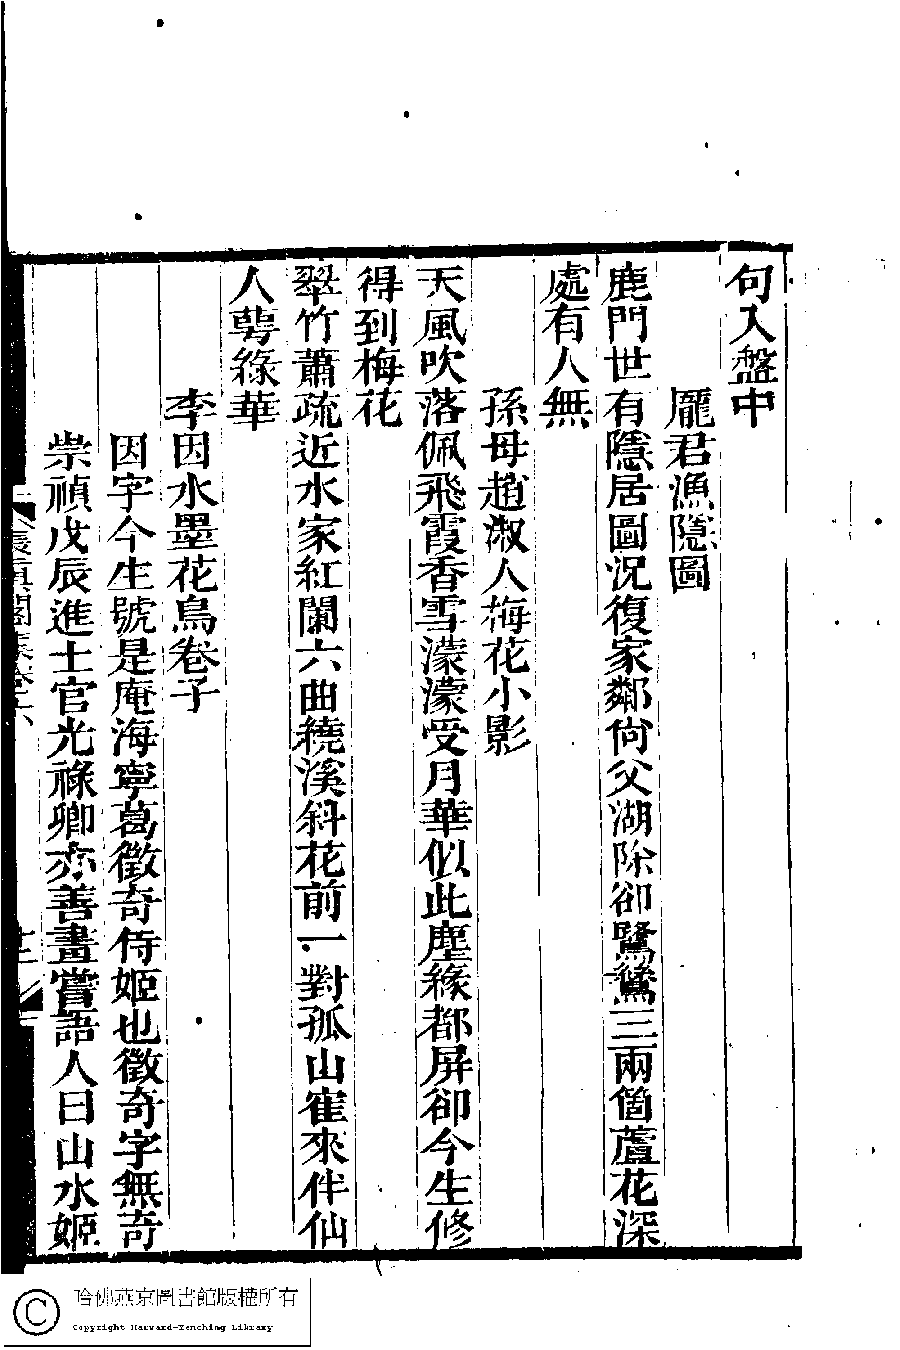 句入盤中
龎君漁隱圖
鹿門世有隱居圖況復家鄰尙父湖除卻鷺鶿三兩箇蘆花深
處有人無
孫母趙淑人梅花小影
天風吹落佩飛霞香雪濛濛受月華似此塵緣都屏卻今生修
得到梅花
翠竹蕭疏近水家紅闌六曲繞溪斜花前一對孤山隺來伴仙
人萼綠華
李因水墨花鳥卷子
因字今生號是庵海寧葛徵奇侍姬也徵奇字無奇
崇禎戊辰進士官光祿卿亦善畫嘗語人曰山水姬
哈佛燕京圖書館版權所有
Copyright Harvard-Yenching Library